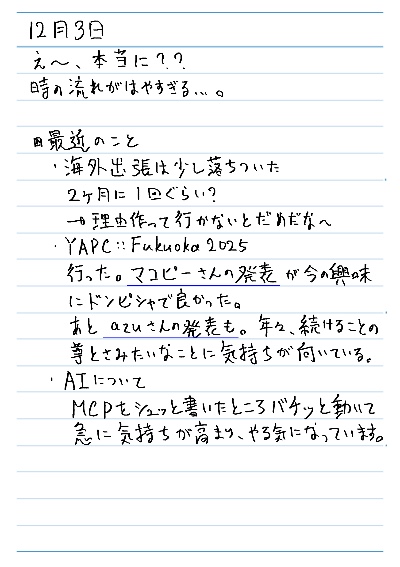 12月3日
え〜、本当に??
時の流れがはやすぎる...。
最近のこと
・海外出張は少し落ちついた
2ヶ月に1回ぐらい?
→理由作って行かないとだめだな〜
・YAPC::Fukuoka 2025
行った。マコピーさんの発表が今の興味
にドンピシャで良かった。
あとazuさんの発表も。年々、続けることの
尊とさみたいなことに気持ちが向いている。
・AIについて
MCPをシュッと書いたところバチッと動いて
急に気持ちが高まり、やる気になっています。